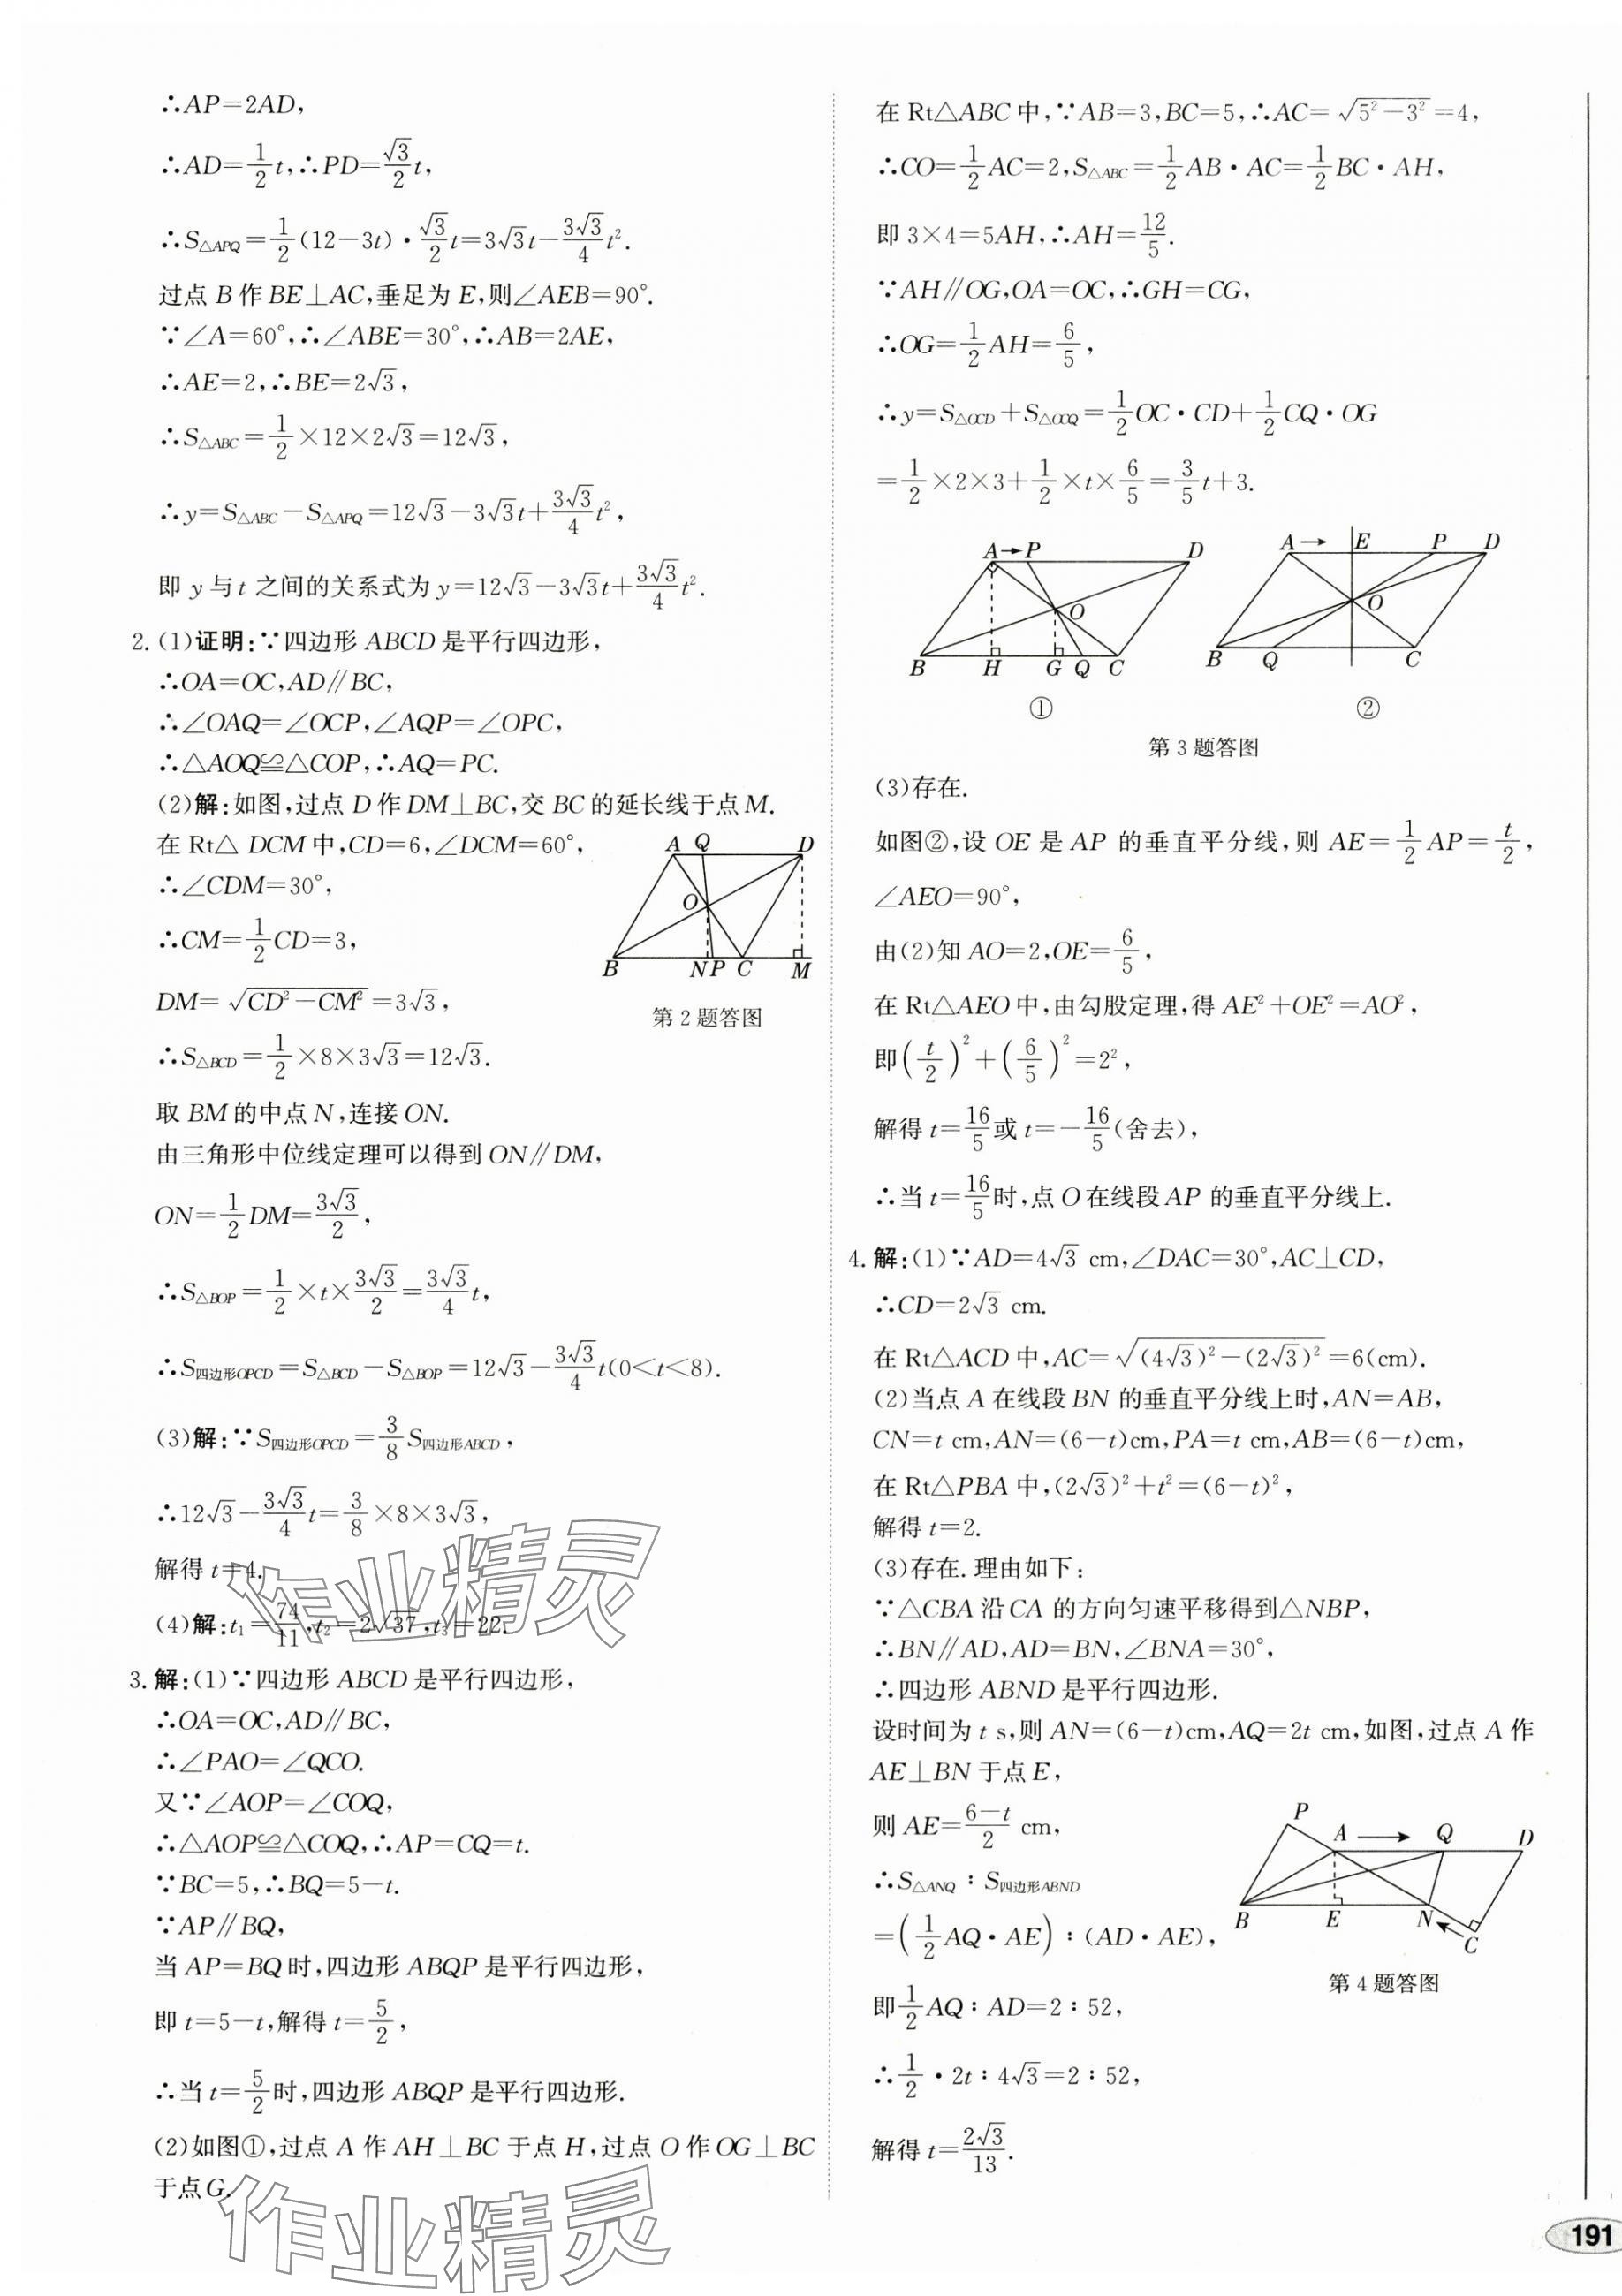 ∴AP=2AD,
∴AD=1/2t,∴PD=√3/2t,
∴S△APQ=1/2(12-3t)·√3/2t=3√3t-3√3/4t².
过点B作BE⊥AC,垂足为E,则∠AEB=90°.
∵∠A=60°,∴∠ABE=30°,∴AB=2AE,
∴AE=2,∴BE=2√3,
∴S△ABC=1/2×12×2√3=12√3,
∴y=S△ABC-S△APQ=12√3-3√3t+3√3/4t²,
即y与t之间的关系式为y=12√3-3√3t+3√3/4t².
2.(1)证明:∵四边形ABCD是平行四边形,
∴OA=OC,AD∥BC,
∴∠OAQ=∠OCP,∠AQP=∠OPC,
∴△AOQ≌△COP,∴AQ=PC.
(2)解:如图,过点D作DM⊥BC,交BC的延长线于点M.
在Rt△DCM中,CD=6,∠DCM=60°,
∴∠CDM=30°,
∴CM=1/2CD=3,
DM=√(CD²-CM²)=3√3,
∴S△BCD=1/2×8×3√3=12√3.
A Q D
O
B N P C M
第2题答图
取BM的中点N,连接ON.
由三角形中位线定理可以得到ON∥DM,
ON=1/2DM=3√3/2,
∴S△BOP=1/2×t×3√3/2=3√3/4t,
∴S四边形OPCD=S△BCD-S△BOP=12√3-3√3/4t(0<t<8).
(3)解:∵S四边形OPCD=3/8S四边形ABCD,
∴12√3-3√3/4t=3/8×8×3√3,
解得t=4.
(4)解:t₁=74/11,t₂=2√37,t₃=22.
3.解:(1)∵四边形ABCD是平行四边形,
∴OA=OC,AD∥BC,
∴∠PAO=∠QCO.
又∵∠AOP=∠COQ,
∴△AOP≌△COQ,∴AP=CQ=t.
∵BC=5,∴BQ=5-t.
∵AP∥BQ,
当AP=BQ时,四边形ABQP是平行四边形,
即t=5-t,解得t=5/2,
∴当t=5/2时,四边形ABQP是平行四边形.
(2)如图①,过点A作AH⊥BC于点H,过点O作OG⊥BC
于点G.
作业精灵
作业精灵
在Rt△ABC中,∵AB=3,BC=5,∴AC=√(5²-3²)=4,
∴CO=1/2AC=2,S△ABC=1/2AB·AC=1/2BC·AH,
即3×4=5AH,∴AH=12/5.
∵AH∥OG,OA=OC,∴GH=CG,
∴OG=1/2AH=6/5,
∴y=S△OCD+S△OCQ=1/2OC·CD+1/2CQ·OG
=1/2×2×3+1/2×t×6/5=3/5t+3.
A→P D
O
B H G Q C
①
A→ E P D
O
B Q C
②
第3题答图
(3)存在.
如图②,设OE是AP的垂直平分线,则AE=1/2AP=t/2,
∠AEO=90°,
由(2)知AO=2,OE=6/5,
在Rt△AEO中,由勾股定理,得AE²+OE²=AO²,
即(t/2)²+(6/5)²=2²,
解得t=16/5或t=-16/5(舍去),
∴当t=16/5时,点O在线段AP的垂直平分线上.
4.解:(1)∵AD=4√3 cm,∠DAC=30°,AC⊥CD,
∴CD=2√3 cm.
在Rt△ACD中,AC=√((4√3)²-(2√3)²)=6(cm).
(2)当点A在线段BN的垂直平分线上时,AN=AB,
CN=t cm,AN=(6-t)cm,PA=t cm,AB=(6-t)cm,
在Rt△PBA中,(2√3)²+t²=(6-t)²,
解得t=2.
(3)存在.理由如下:
∵△CBA沿CA的方向匀速平移得到△NBP,
∴BN∥AD,AD=BN,∠BNA=30°,
∴四边形ABND是平行四边形.
设时间为t s,则AN=(6-t)cm,AQ=2t cm,如图,过点A作
AE⊥BN于点E,
则AE=(6-t)/2 cm,
∴S△ANQ:S四边形ABND
=(1/2AQ·AE):(AD·AE),
即1/2AQ:AD=2:52,
∴1/2·2t:4√3=2:52,
解得t=2√3/13.
P
A → Q D
B E N C
第4题答图
191